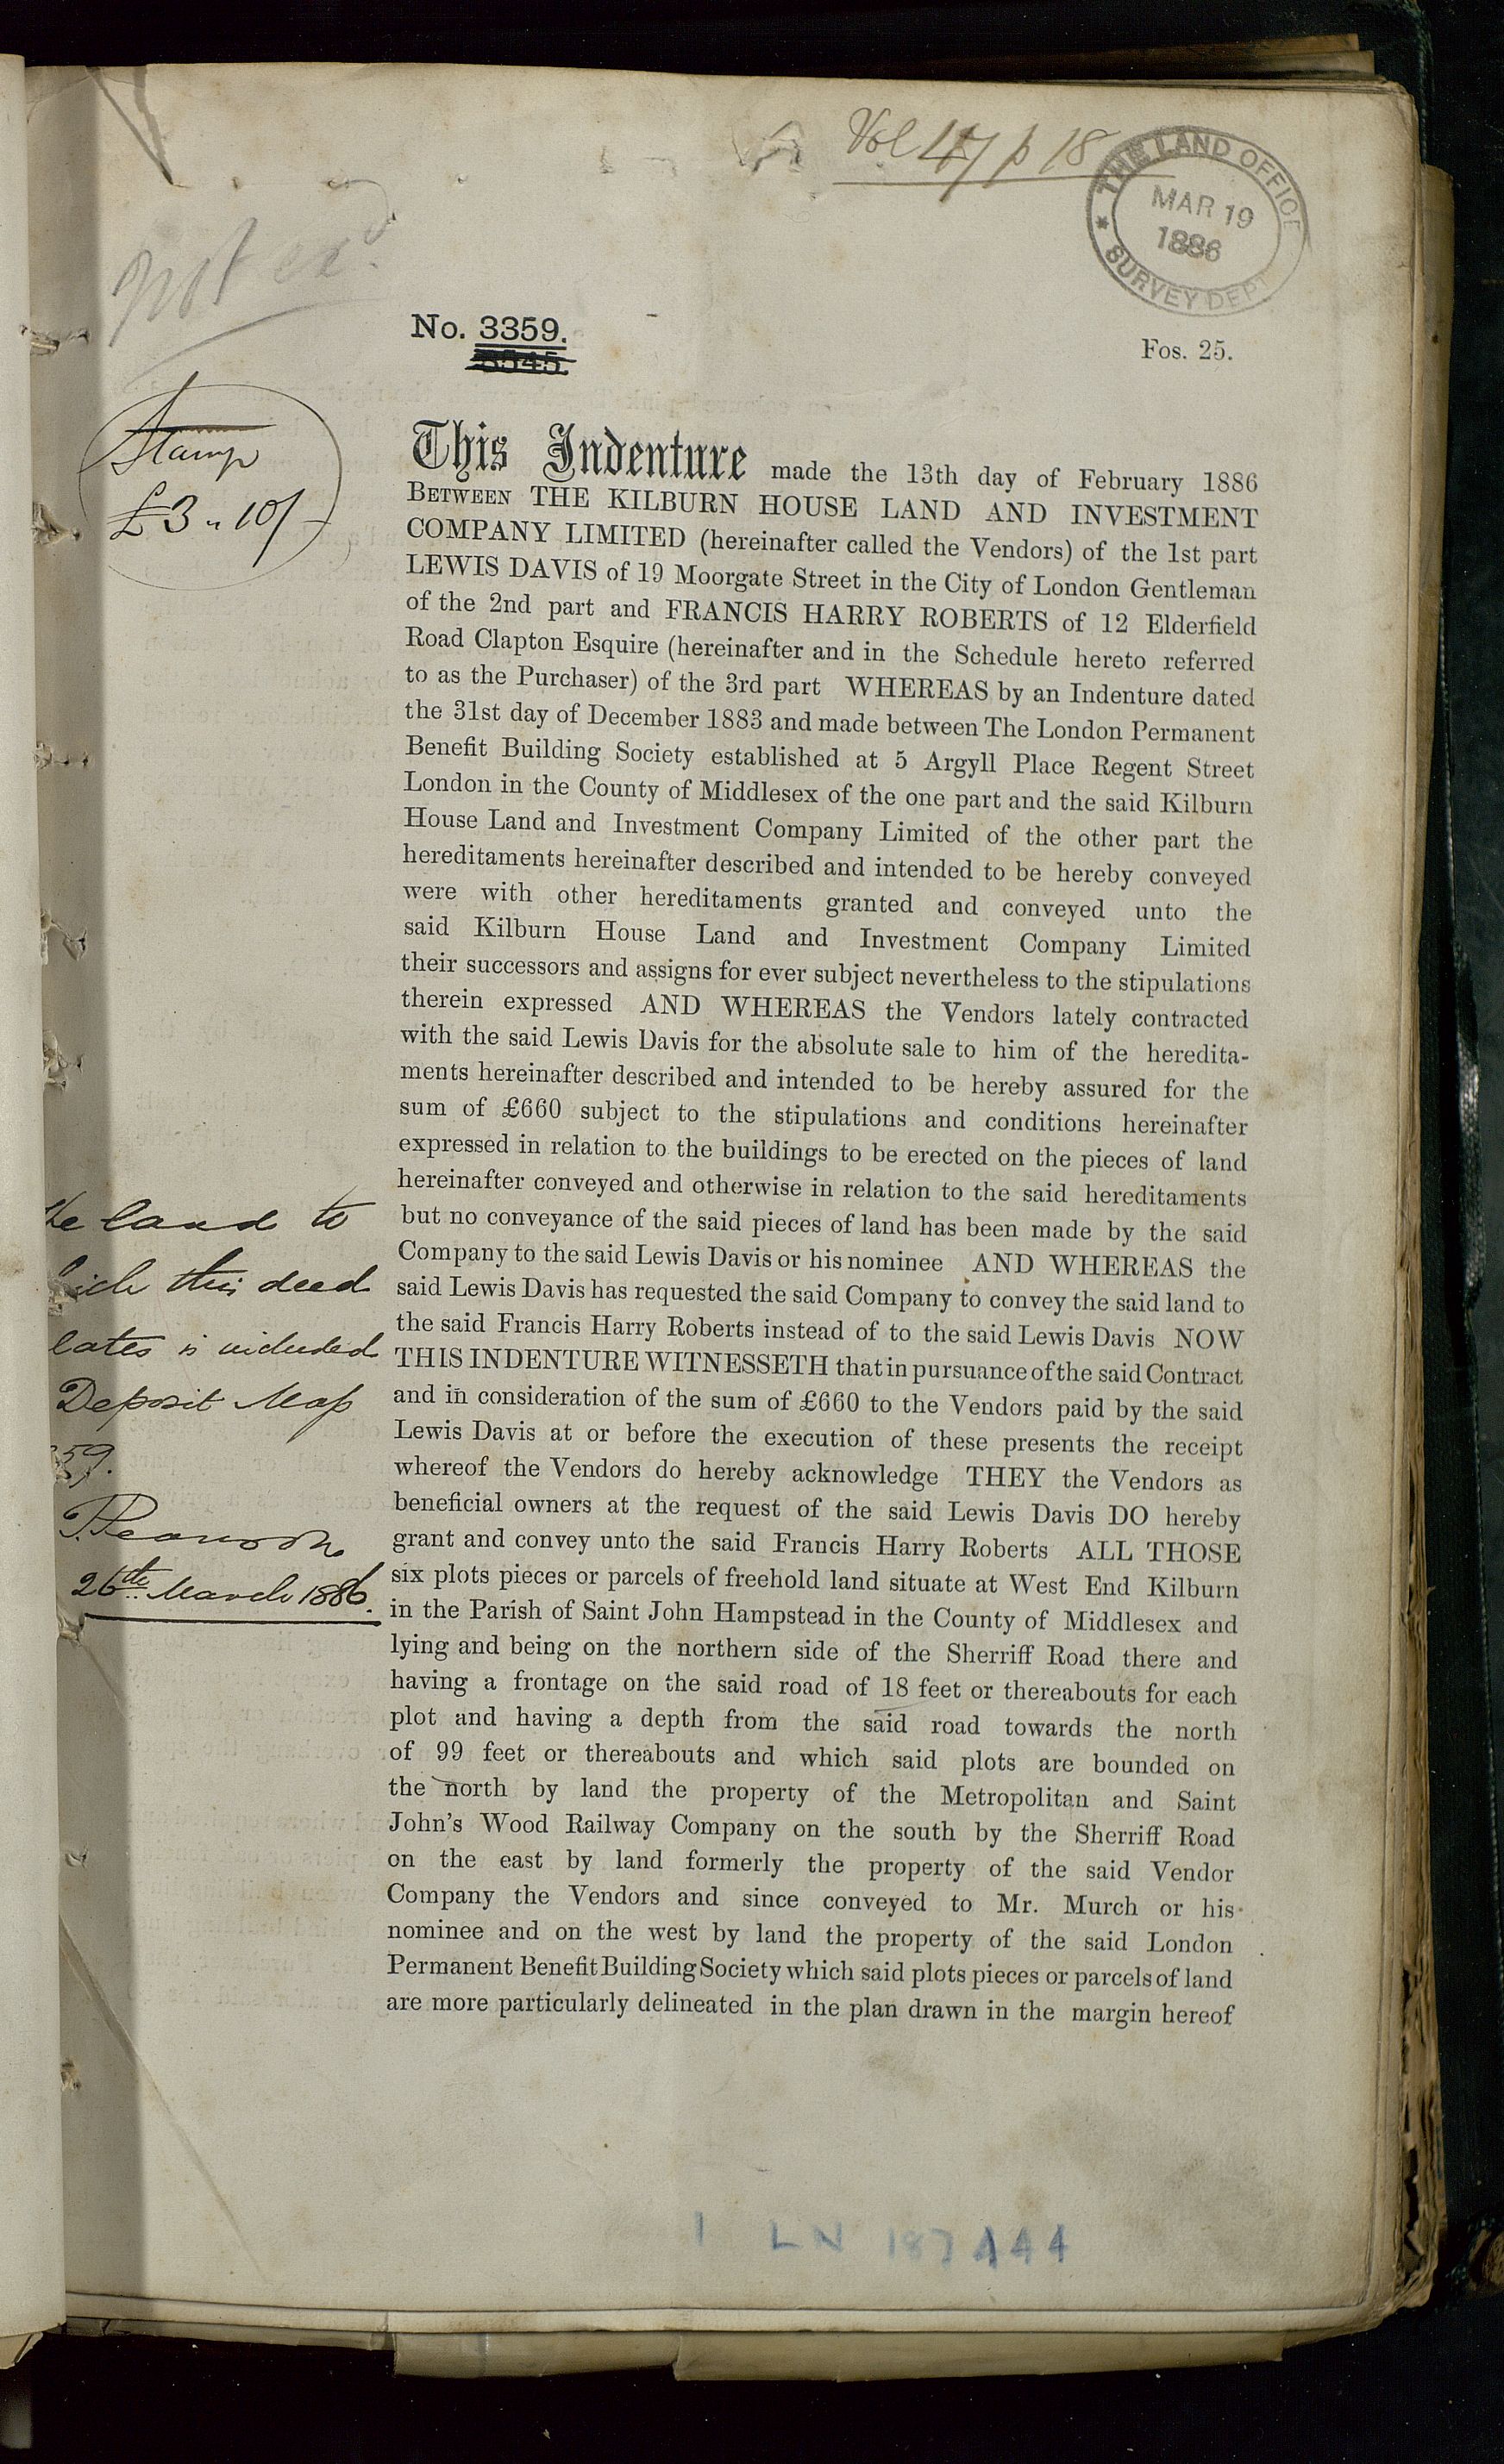 Vol 47 p 18
THE LAND OFFICE
MAR 19
1886
SURVEY DEPT
not exd.
No. 3359.
3545.
Fos. 25.
Stamp
£3 " 10/-
This Indenture made the 13th day of February 1886
BETWEEN THE KILBURN HOUSE LAND AND INVESTMENT
COMPANY LIMITED (hereinafter called the Vendors) of the 1st part
LEWIS DAVIS of 19 Moorgate Street in the City of London Gentleman
of the 2nd part and FRANCIS HARRY ROBERTS of 12 Elderfield
Road Clapton Esquire (hereinafter and in the Schedule hereto referred
to as the Purchaser) of the 3rd part WHEREAS by an Indenture dated
the 31st day of December 1883 and made between The London Permanent
Benefit Building Society established at 5 Argyll Place Regent Street
London in the County of Middlesex of the one part and the said Kilburn
House Land and Investment Company Limited of the other part the
hereditaments hereinafter described and intended to be hereby conveyed
were with other hereditaments granted and conveyed unto the
said Kilburn House Land and Investment Company Limited
their successors and assigns for ever subject nevertheless to the stipulations
therein expressed AND WHEREAS the Vendors lately contracted
with the said Lewis Davis for the absolute sale to him of the heredita-
ments hereinafter described and intended to be hereby assured for the
sum of £660 subject to the stipulations and conditions hereinafter
expressed in relation to the buildings to be erected on the pieces of land
hereinafter conveyed and otherwise in relation to the said hereditaments
but no conveyance of the said pieces of land has been made by the said
Company to the said Lewis Davis or his nominee AND WHEREAS the
said Lewis Davis has requested the said Company to convey the said land to
the said Francis Harry Roberts instead of to the said Lewis Davis NOW
THIS INDENTURE WITNESSETH that in pursuance of the said Contract
and in consideration of the sum of £660 to the Vendors paid by the said
Lewis Davis at or before the execution of these presents the receipt
whereof the Vendors do hereby acknowledge THEY the Vendors as
beneficial owners at the request of the said Lewis Davis DO hereby
grant and convey unto the said Francis Harry Roberts ALL THOSE
six plots pieces or parcels of freehold land situate at West End Kilburn
in the Parish of Saint John Hampstead in the County of Middlesex and
lying and being on the northern side of the Sherriff Road there and
having a frontage on the said road of 18 feet or thereabouts for each
plot and having a depth from the said road towards the north
of 99 feet or thereabouts and which said plots are bounded on
the north by land the property of the Metropolitan and Saint
John's Wood Railway Company on the south by the Sherriff Road
on the east by land formerly the property of the said Vendor
Company the Vendors and since conveyed to Mr. Murch or his
nominee and on the west by land the property of the said London
Permanent Benefit Building Society which said plots pieces or parcels of land
are more particularly delineated in the plan drawn in the margin hereof
he land to
ich this deed
lates is included
Deposit Map
59.
26th March 1886.
1 LN 187444